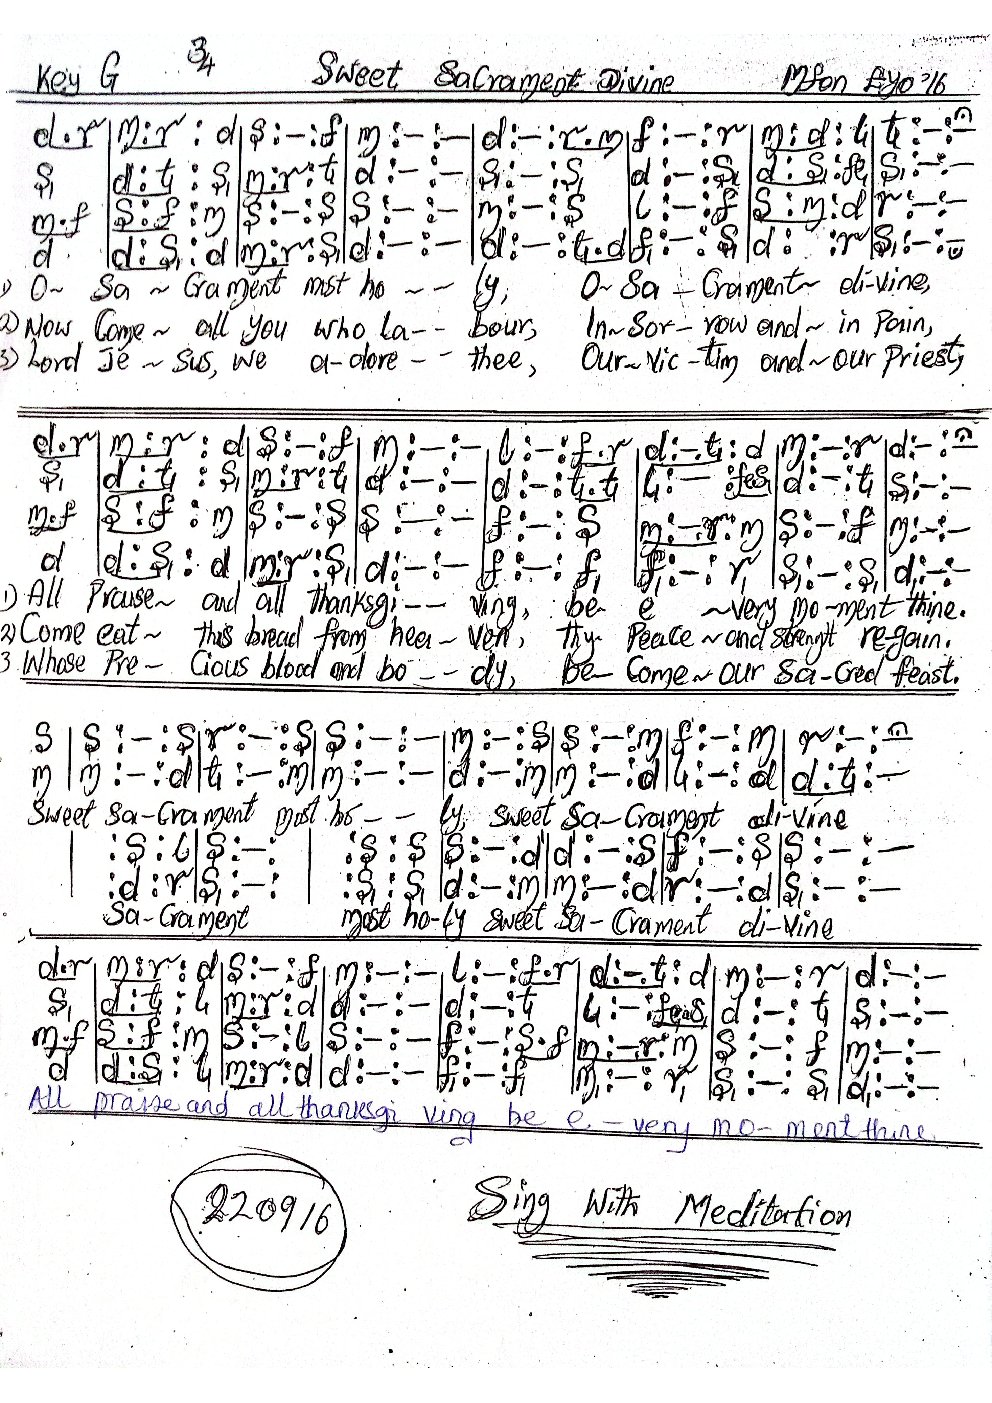 Key G 3/4 Sweet Sacrament Divine Mfon Eyo '16
d.r | m:r :d | s:-:f | m:-:- | d:-:r.m | f:-:r | m:d:t₁ | t₁:-:-
s₁ | d:t₁ :s₁ | m:r:t₁ | d:-:- | s₁:-:s₁ | d:-:s₁ | d:s₁:fe₁ | s₁:-:-
m.f | s:f :m | s:-:s | s:-:- | m:-:s | l:-:f | s:m:d | r:-:-
d | d:s₁:d | m:r:s₁ | d:-:- | d:-:t₁.d | f₁:-:s₁ | d: :r | s₁:-:-
1) O~ Sa ~ Crament most ho - - ly, O~ Sa - Crament~ di-vine,
2) Now Come~ all you who La-- bour, In~Sor-row and~ in Pain,
3) Lord Je ~ Sus, we a-dore -- thee, Our~Vic-tim and~our Priest,
d.r | m:r :d | s:-:f | m:-:- | l:-:f.r | d:-.t₁:d | m:-:r | d:-:-
s₁ | d:t₁ :s₁ | m:r:t₁ | d:-:- | d:-:t₁.t₁ | l₁:- :fe.s₁ | d:-:t₁ | s₁:-:-
m.f | s:f :m | s:-:s | s:-:- | f:-:s | m:-.r:m | s:-:f | m:-:-
d | d:s₁:d | m:r:s₁ | d:-:- | f:-:f₁ | f₁:-:r₁ | s₁:-:s₁ | d₁:-:-
1) All Praise~ and all thanksgi -- ving, be e ~very mo-ment thine.
2) Come eat~ this bread from hea-ven, thy Peace~and strenght re-gain.
3. Whose Pre- Cious blood and bo -- dy, be-Come~our Sa-Cred feast.
s | s:-:s | r:-:s | s:-:- | m:-:s | s:-:m | f:-:m | r:-:-
m | m:-:d | t₁:-:m | m:-:- | d:-:m | m:-:d | l₁:-:d | d:t₁:-
Sweet Sa-Crament most ho -- ly, sweet Sa-Crament di-vine
| :s:l | s:-: | :s:s | s:-:d | d:-:s | f:-:s | s:-:-
:d:r | s₁:-: | :s₁:s₁ | d:-:m | m:-:d | r:-:d | s₁:-:-
Sa-Crament most ho-ly sweet Sa-Crament di-vine
d.r | m:r :d | s:-:f | m:-:- | l:-:f.r | d:-.t₁:d | m:-:r | d:-:-
s₁ | d:t₁ :l₁ | m:r:d | d:-:- | d:-:t₁ | l₁:-:fe.s₁ | d:-:t₁ | s₁:-:-
m.f | s:f :m | s:-:l | s:-:- | f:-:s.f | m:-.r:m | s:-:f | m:-:-
d | d:s₁:l₁ | m:r:d | d:-:- | f₁:-:f₁ | m₁:-:r₁ | s₁:-:s₁ | d₁:-:-
All praise and all thanksgi ving be e - very mo-ment thine
220916
Sing With Meditation